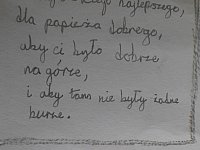 najlepszego,
dla papieża dobrego,
aby ci było dobrze
na górze,
i aby tam nie były żadne
burze.